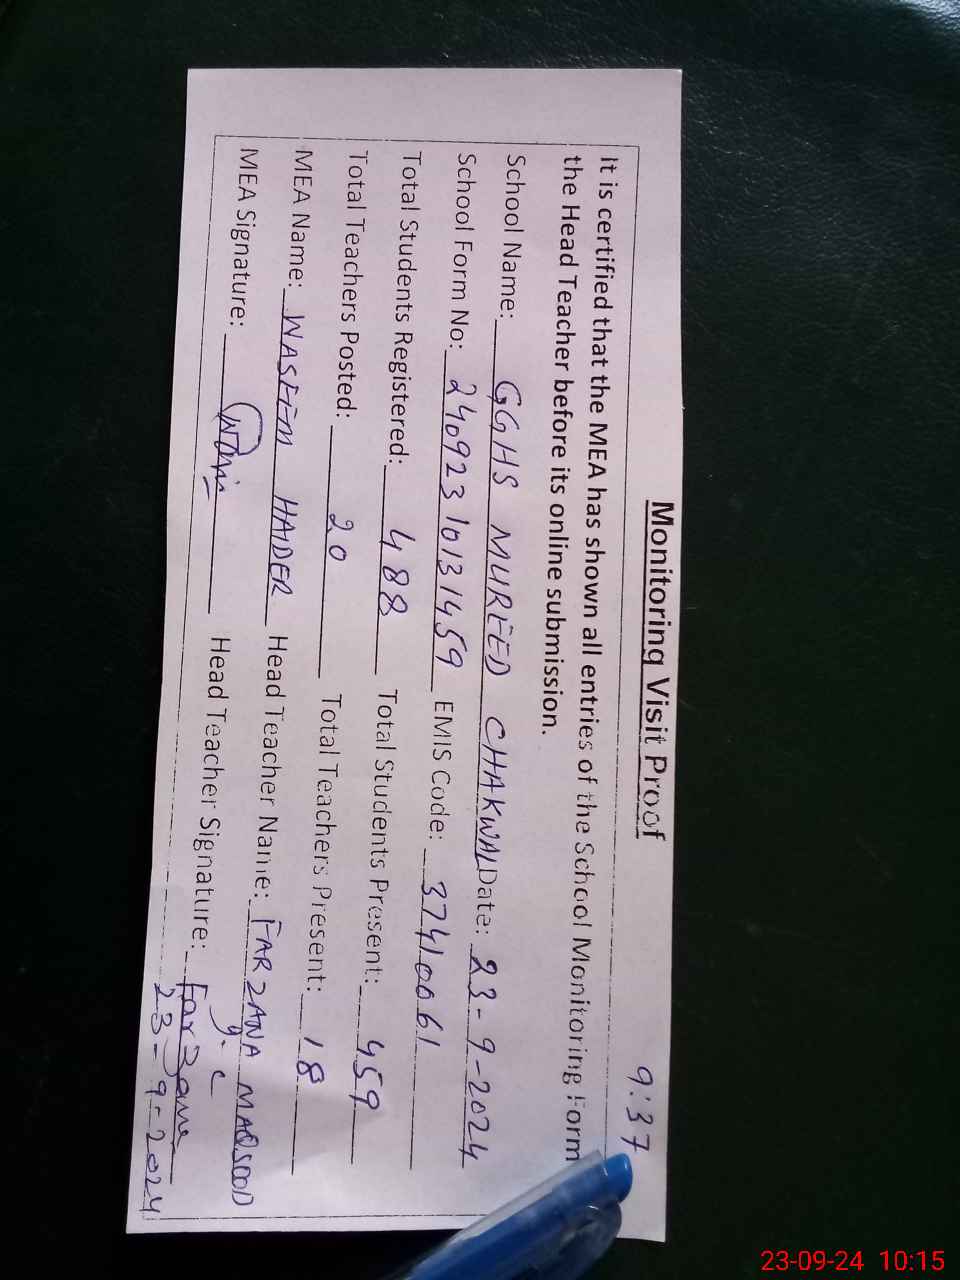 9:37
Monitoring Visit Proof
It is certified that the MEA has shown all entries of the School Monitoring Form
the Head Teacher before its online submission.
School Name: GGHS MUREED CHAKWAL Date: 23-9-2024
School Form No: 24092310131459 EMIS Code: 37410061
Total Students Registered: 488 Total Students Present: 459
Total Teachers Posted: 20 Total Teachers Present: 18
MEA Name: WASEEM HAIDER Head Teacher Name: FARZANA MAQSOOD
MEA Signature: Head Teacher Signature: Farzana
23-9-2024
23-09-24 10:15